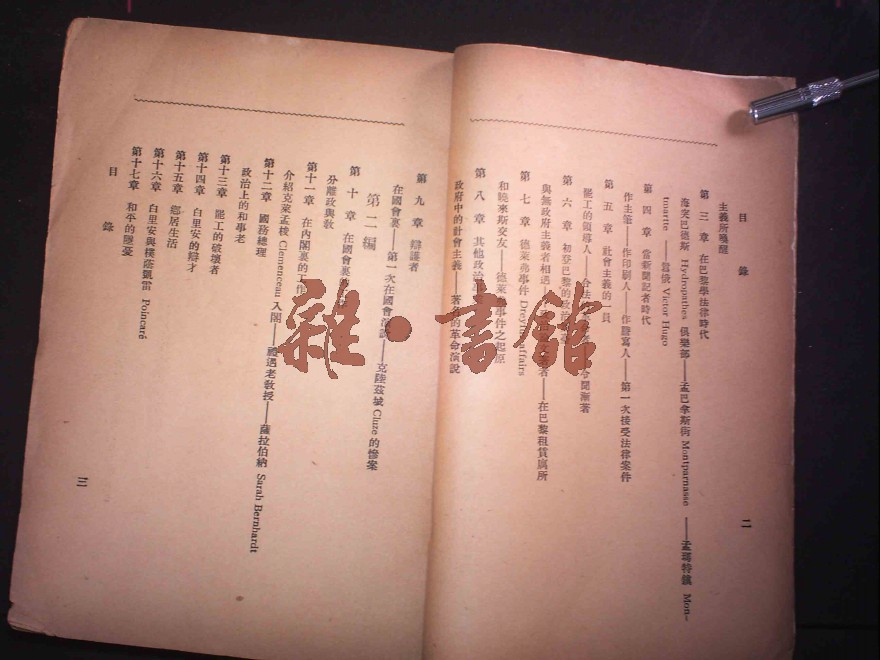 目錄
二
主義所喚醒
第三章 在巴黎學法律時代
海突巴德斯 Hydropathes 俱樂部——孟巴拿斯街 Montparnasse ——孟瑪特鎮 Mon-
tmartre ——囂俄 Victor Hugo
第四章 當新聞記者時代
作主筆——作印刷人——作謄寫人——第一次接受法律案件
第五章 社會主義的一員
罷工的領導人
開漸著
第六章 初登巴黎的政治
與無政府主義者相遇
者——在巴黎租賃寓所
第七章 德萊弗事件 Dreyfus affairs
和曉來斯交友——德萊弗事件之起原
第八章 其他政治
政府中的社會主義——著名的革命演說
第九章 辯護者
在國會裏——第一次在國會演說——克陸茲城 Cluze 的慘案
第二編
第十章 在國會裏
分離政與教
第十一章 在內閣裏的工作
介紹克萊孟梭 Clemenceau 入閣——禮遇老教授——薩拉伯納 Sarah Bernhardt
第十二章 國務總理
政治上的和事老
第十三章 罷工的破壞者
第十四章 白里安的辯才
第十五章 鄉居生活
第十六章 白里安與樸蒞凱雷 Poincaré
第十七章 和平的隱憂
目錄
三
雜·書館